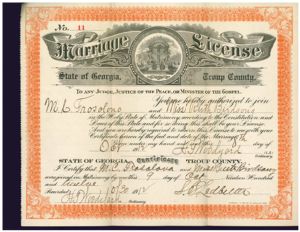 No. 11
Marriage License
State of Georgia, Troup County.
TO ANY JUDGE, JUSTICE OF THE PEACE, OR MINISTER OF THE GOSPEL.
You are hereby authorized to join
M. C. Trosolono and Miss Ruth
in the Holy State of Matrimony according to the Constitution and
Laws of this State and for so doing this shall be your License.
And you are hereby required to return this License to me with your
Certificate hereon of the fact and date of the Marriage.
Given under my hand and seal this 8th day of
Oct
STATE OF GEORGIA, Certificate TROUP COUNTY.
I Certify that M. C. Trosolono and Miss Ruth
were joined in Matrimony by me this 9 day of Oct Nineteen Hundred
and twelve
10/30 1912